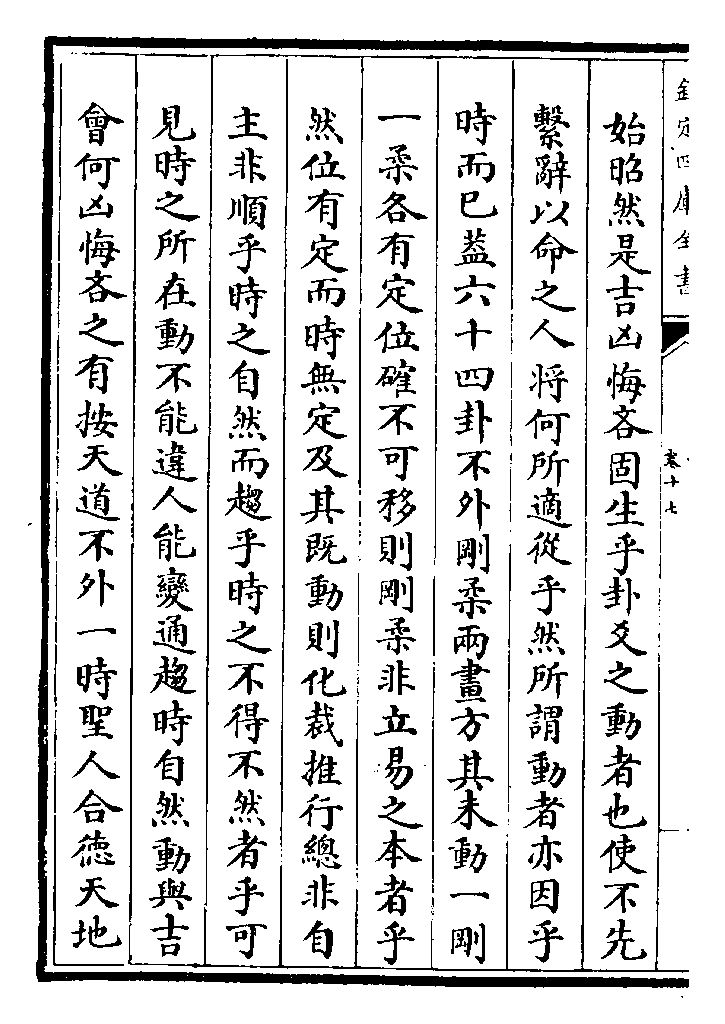 欽定四庫全書
卷十七
始昭然是吉凶悔吝固生乎卦爻之動者也使不先
繫辭以命之人將何所適從乎然所謂動者亦因乎
時而已葢六十四卦不外剛柔兩畫方其未動一剛
一柔各有定位確不可移則剛柔非立易之本者乎
然位有定而時無定及其既動則化裁推行總非自
主非順乎時之自然而趨乎時之不得不然者乎可
見時之所在動不能違人能變通趨時自然動與吉
會何凶悔吝之有按天道不外一時聖人合德天地